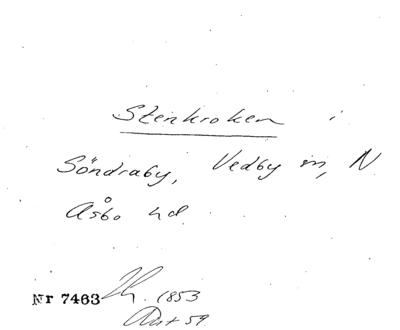 Stenkroken i
Söndraby, Vedby sn, N
Åsbo hd.
Nr 7463
1853
59